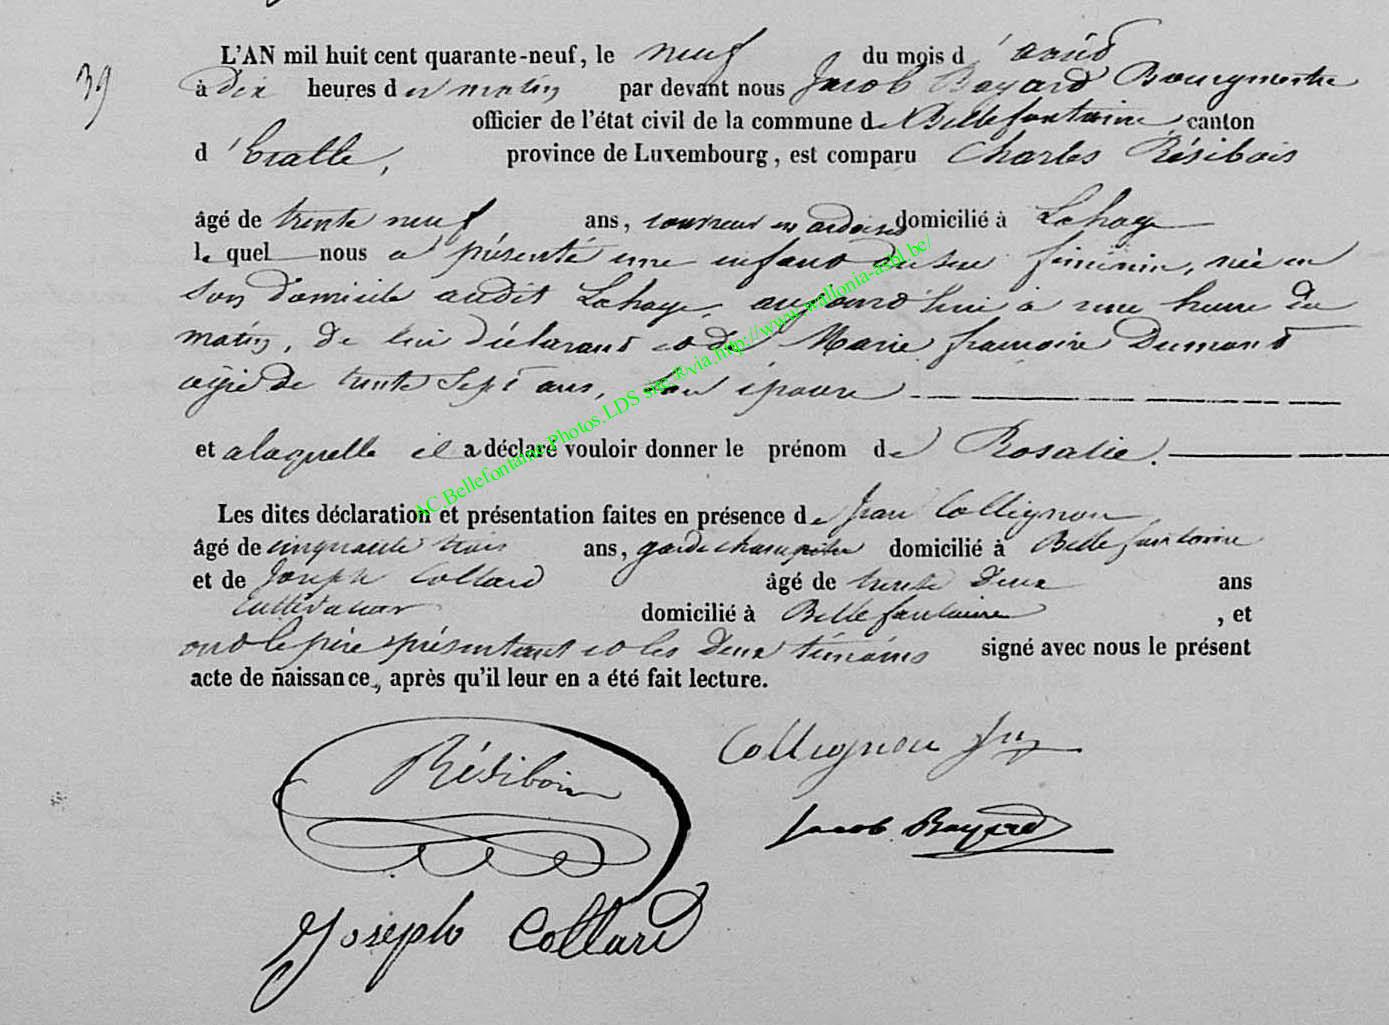 39
L'AN mil huit cent quarante-neuf, le neuf du mois d'août
à dix heures du matin par devant nous Jacob Bayard Bourgmestre
officier de l'état civil de la commune de Bellefontaine canton
d'Etalle, province de Luxembourg, est comparu Charles Résibois
âgé de trente neuf ans, couvreur en ardoises domicilié à Lahage
le quel nous a présenté une enfant du sexe féminin, née en
son domicile audit Lahage, aujourd'hui à une heure du
matin, de lui déclarant et de Marie françoise Dumont
agée de trente sept ans, son épouse
et alaquelle il a déclaré vouloir donner le prénom de Rosalie.
Les dites déclaration et présentation faites en présence de Jean Collignon
âgé de cinquante trois ans, garde champêtre domicilié à Bellefontaine
et de Joseph Collard âgé de trente deux ans
cultivateur domicilié à Bellefontaine, et
ont le père présentant et les deux témoins signé avec nous le présent
acte de naissance, après qu'il leur en a été fait lecture.
Résibois
Collignon
Jacob Bayard
Joseph Collard
AC.Bellefontaine.Photos.LDS via.http://www.wallonia-asbl.be/